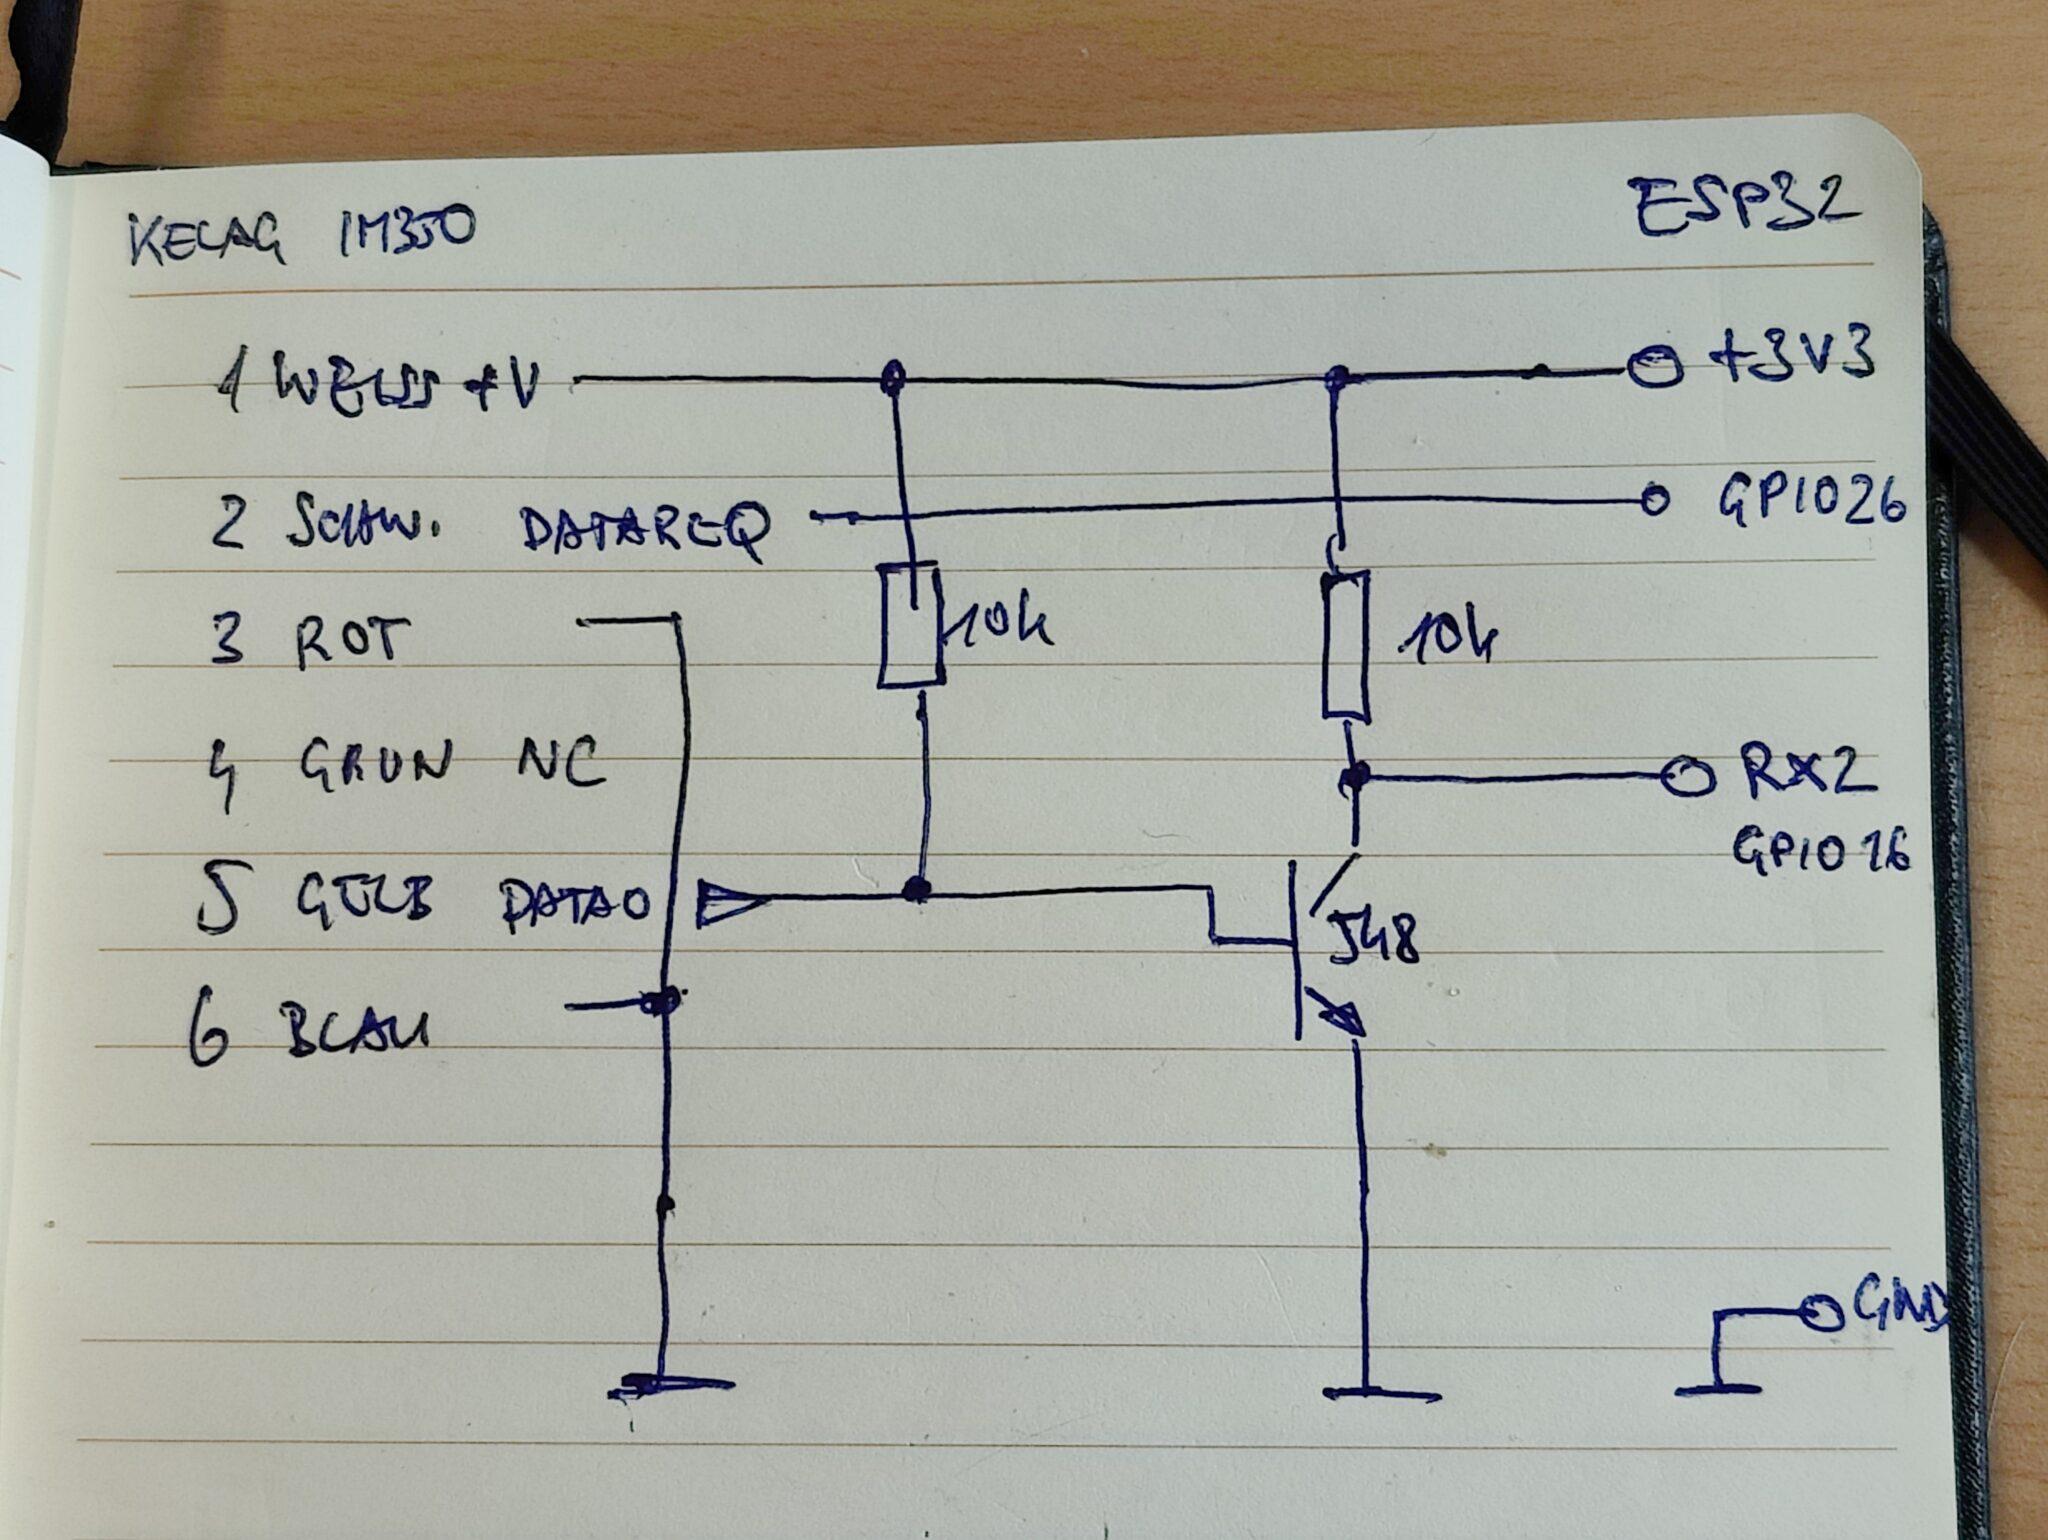 KELAG IM350 ESP32
1 WEISS +V +3V3
2 SCHW. DATAREQ GPIO26
3 ROT 10k 10k
4 GRUN NC RX2
GPIO16
5 GELB DATAO 548
6 BLAU
GND